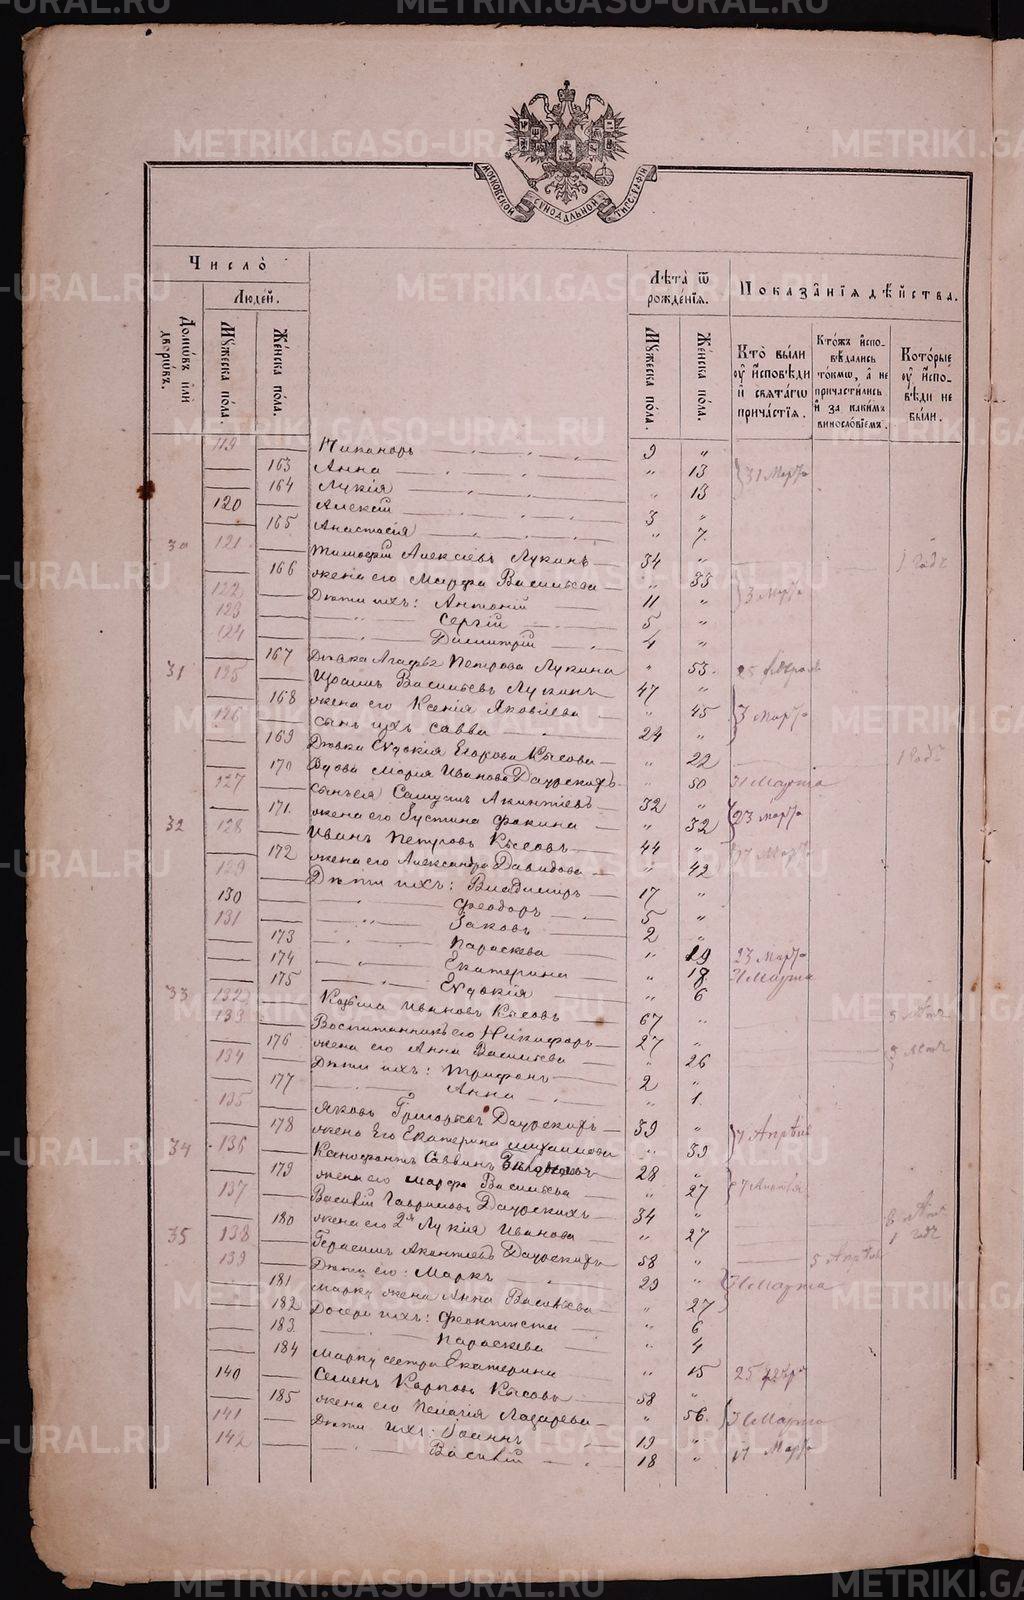 МОСКОВСКОЙ СѴНОДАЛЬНОЙ ТИПОГРАФІИ
Число̀
Людей.
Домѡвъ илѝ дворѡвъ.
Мꙋжеска по́ла.
Же́нска по́ла.
Лѣта̀ ѿ рожде́нїѧ.
Мꙋжеска по́ла.
Же́нска по́ла.
Показа̂нїѧ дѣйства.
Кто̀ были ᲂу҆ и҆сповѣди и҆ свѧта́гѡ прича́стїѧ.
Кто́жъ и҆спо-вѣдались то́кмѡ, а҆ не причасти́лись и҆ за каки́мъ винословїемъ.
Кото́рые ᲂу҆ и҆спо-вѣди не были.
119 Никаноръ 9 "
163 Анна " 13 31 Марта
164 Лукія " 13
120 Алексій 3 "
165 Анастасія " 7
30 121 Тимофій Алексіевъ Лукинъ 34 " 1 годъ
166 жена его Марфа Васильева " 33
122 Дѣти ихъ: Антоній 11 " 3 Марта
123 Сергій 5 "
124 Димитрій 4 "
167 Дѣвка Агафья Петрова Лукина " 53. 25 Февраля
31 125 Васильевъ Лукинъ 47 "
168 жена его Ксенія Яковлева " 45 3 Марта
126 сынъ ихъ Савва 24 "
169 Дѣвка Евдокія Егорова Кысова " 22 1 годъ
170 Вдова Марія Иванова Даурскихъ " 50 31 Марта
127 сынъ ея Акинтіевъ 32 "
171. жена его Іустина Фокина " 32 23 Марта
32 128 Иванъ Петровъ Кысовъ 44 "
172 жена его Александра Давидова " 42
129 Дѣти ихъ: Владимиръ 17 "
130 Феодоръ 5 "
131 Іаковъ 2 "
173 Параскева " 19 23 Марта
174 Екатерина " 18 31 Марта
175 Евдокія " 6
33 132 Козьма Ивановъ Кысовъ 67 " 5 лѣтъ
133 Воспитанникъ его Никифоръ 27 "
176 жена его Анна Васильева " 26 3 лѣтъ
134 Дѣти ихъ: Трифонъ 2 "
177 Анна " 1.
135 Яковъ Григорьевъ Даурскихъ 39 "
178 жена Его Екатерина Михаилова " 39 7 Апрѣля
34 136 Ксенофонтъ Саввинъ 28 "
179 жена его Марфа Васильева " 27 7 Апрѣля
137 Василій Гавриловъ Даурскихъ 34 "
180 жена его 2я Лукія Иванова " 27 1 годъ
35 138 Герасимъ Акентіевъ Даурскихъ 58 " 5 Апрѣля
139 Дѣти его: Маркъ 29 " 31 Марта
181 Марку жена Анна Васильева " 27
182 Дочери ихъ: Феоктиста " 6
183. Параскева " 4
184 Марку сестра Екатерина " 15 25 Февр
140 Семенъ Карповъ Кысовъ 58 "
185 жена его Пелагія Лазарева " 56. 31 Марта
141 Дѣти ихъ: Іоаннъ 19 "
142 Василій 18 " 17 Марта
METRIKI.GASO-URAL.RU